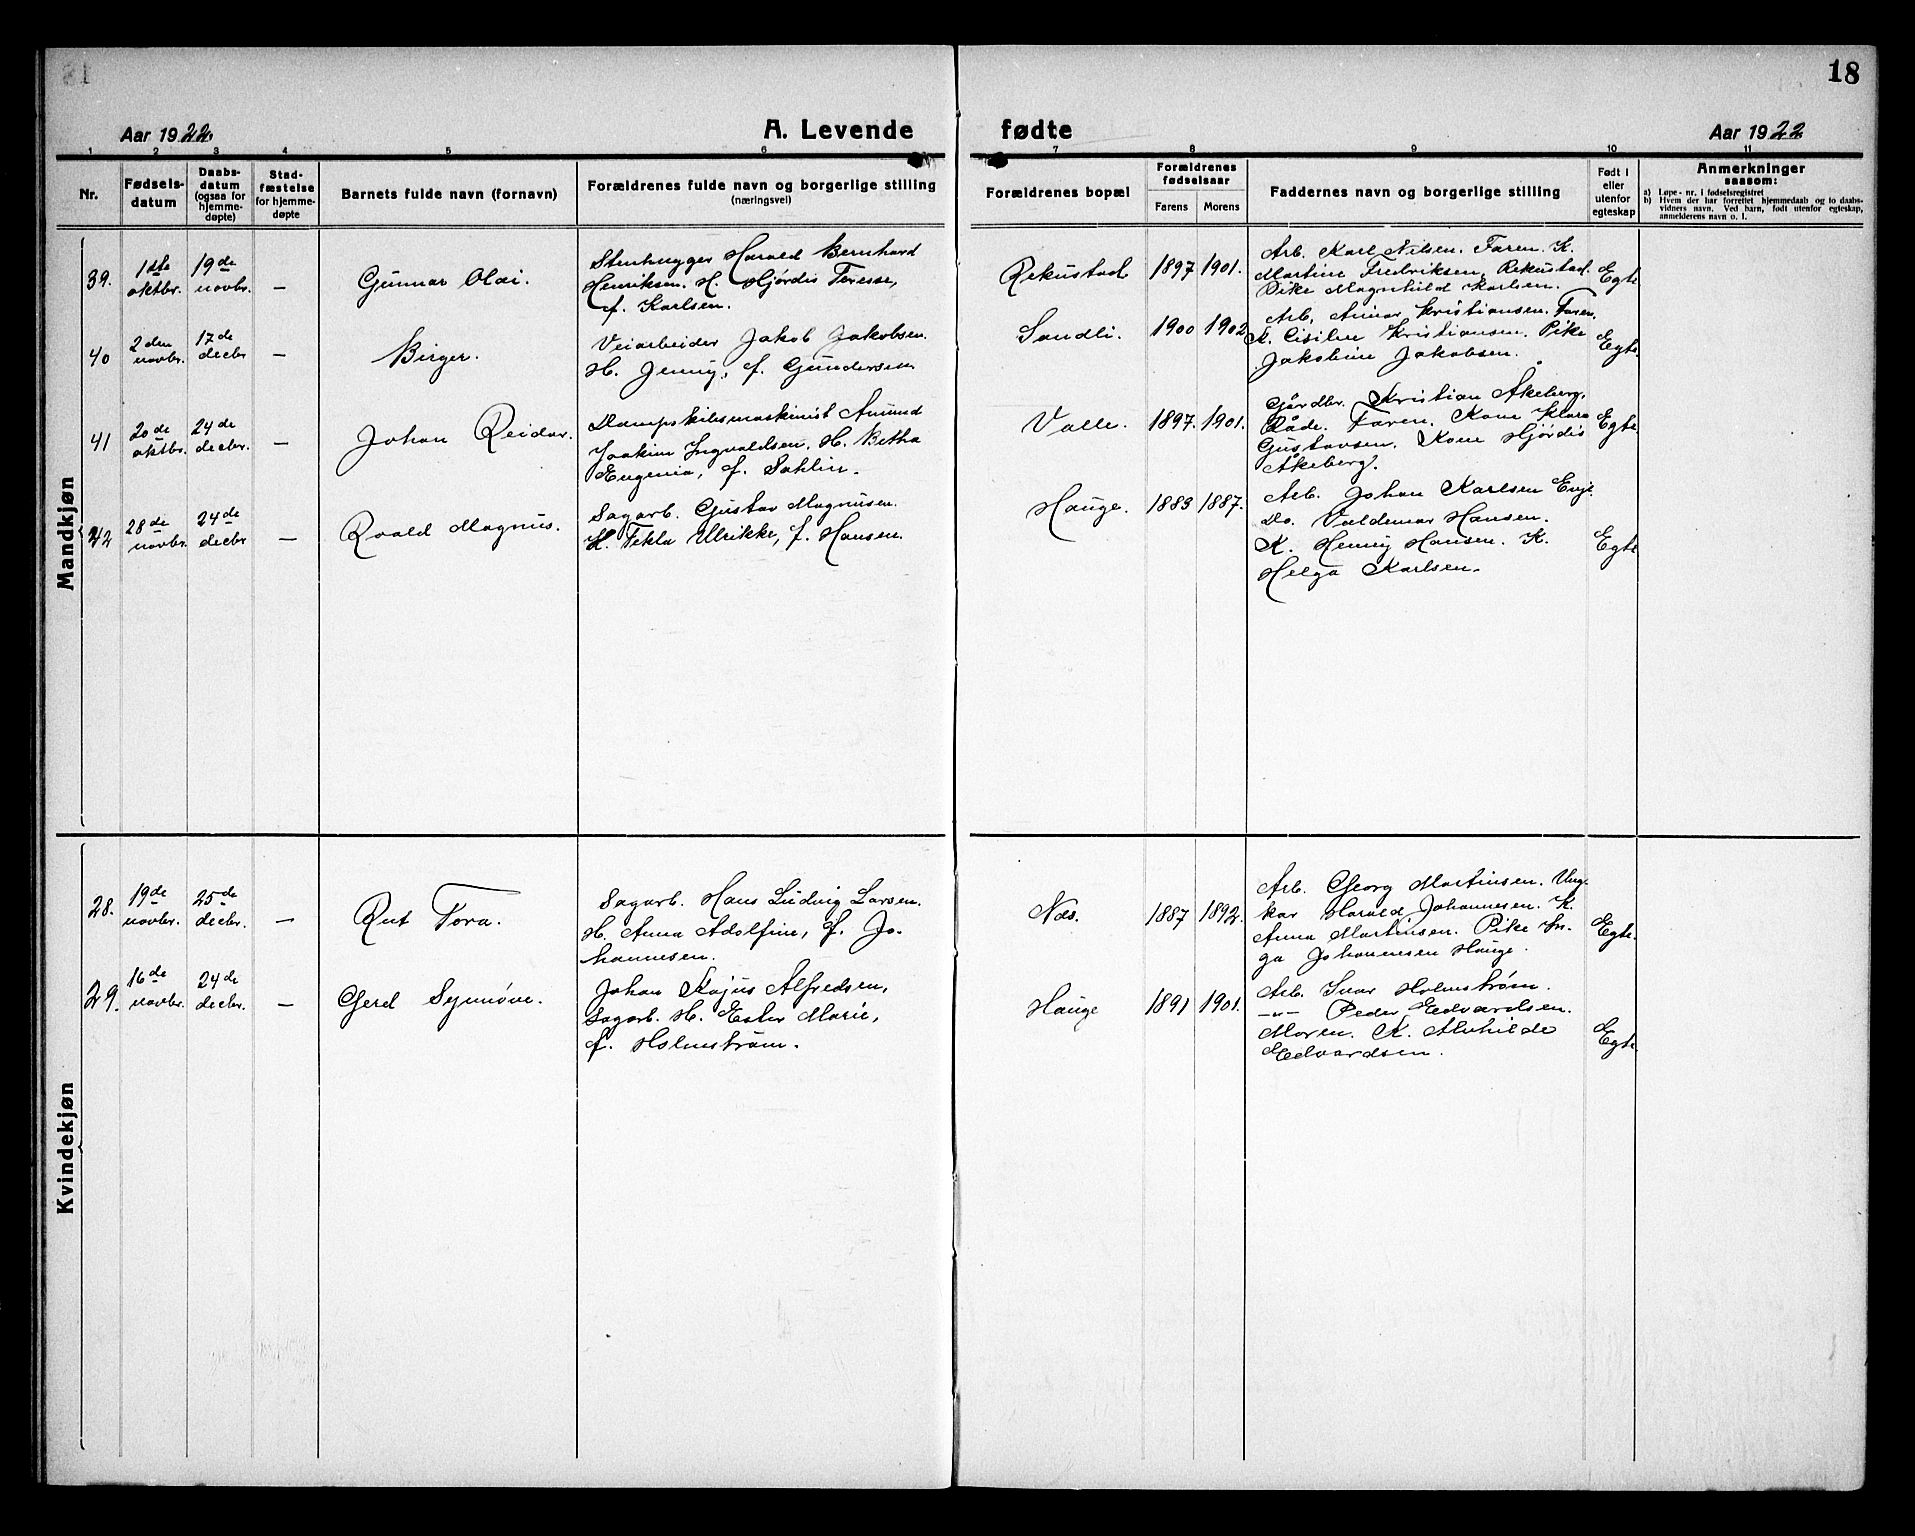 18
Aar 1922.
A. Levende
fødte
Aar 1922
1 2 3 4 5 6 7 8 9 10 11
Nr.
Fødsels-
datum
Daabs-
datum
(ogsaa for
hjemme-
døpte)
Stad-
fæstelse
for hjemme-
døpte
Barnets fulde navn (fornavn)
Forældrenes fulde navn og borgerlige stilling
(næringsvei)
Forældrenes bopæl
Forældrenes
fødselsaar
Farens
Morens
Faddernes navn og borgerlige stilling
Født i
eller
utenfor
egteskap
Anmerkninger
saasom:
a) Løpe-nr. i fødselsregistret
b) Hvem der har forrettet hjemmedaab og to daabs-
vidners navn. Ved barn, født utenfor egteskap,
anmelderens navn o. l.
Mandkjøn
39.
1ste
oktbr.
19de
novbr.
—
Gunnar Olai.
Stenhugger Harald Bernhard
Henriksen. H. Hjørdis Teresse,
f. Karlsen.
Rekustad
1897
1901.
Arb. Karl Nilsen. Faren. K.
Martine Fredriksen, Rekustad.
Pike Magnhild Karlsen.
Egte
40
2den
novbr.
17de
decbr.
—
Birger.
Veiarbeider Jakob Jakobsen.
H. Jenny, f. Gundersen
Sandli.
1900
1902
Arb. Kristiansen. Faren.
K. Kristiansen. Pike
Jakobine Jakobsen.
Egte
41
20de
oktbr.
24de
decbr.
—
Johan Reidar.
Dampskibsmaskinist Amund
Joakim Ingvaldsen. H. Betha
Eugenia, f. Sahlin.
Valle.
1897.
1901.
Gårdbr. Kristian Åkeberg.
Råde. Faren. Kone Klara
Gustavsen. Kone Hjørdis
Åkeberg.
Egte
42
28de
novbr.
24de
decbr
—
Roald Magnus.
Sagarb. Gustav Magnusen.
H. Tekla Ulrikke, f. Hansen.
Hauge.
1883
1887.
Arb. Johan Karlsen
Do. Valdemar Hansen.
K. Henny Hansen. K.
Helga Karlsen.
Egte
Kvindekjøn
28.
19de
novbr.
25de
decbr.
—
Rut Tora.
Sagarb. Hans Ludvig Larsen.
H. Anna Adolfine, f. Jo-
hannesen.
Næs.
1887
1892.
Arb. Georg Martinsen. Ung-
kar Harald Johannesen. K.
Anna Martinsen. Pike In-
ga Johannesen Hauge.
Egte.
29.
16de
novbr.
24de
decbr.
—
Gerd Synnøve.
Johan Kajus Alfredsen,
Sagarb. H. Ester Marie,
f. Holmstrøm.
Hauge
1891
1901.
Arb. Ivar Holmstrøm.
—"— Peder Edvardsen.
Moren. K. Alvhilde
Edvardsen.
Egte